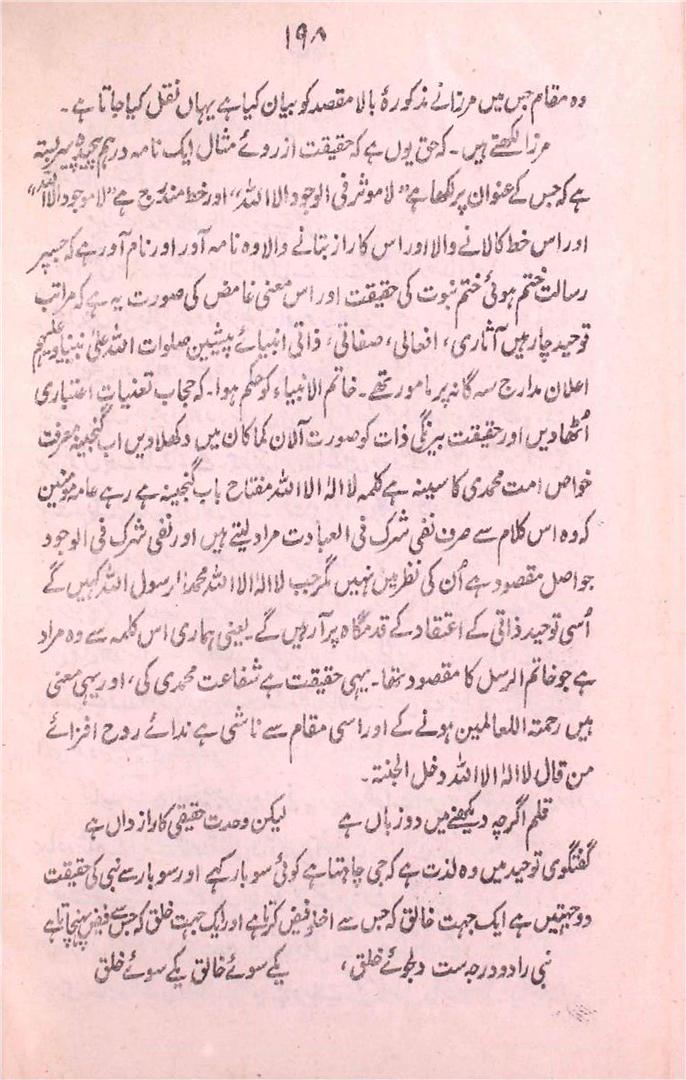 ۱۹۸
وہ مقام جس میں مرزا نے مذکورۂ بالا مقصد کو بیان کیا ہے یہاں نقل کیا جاتا ہے۔
مرزا لکھتے ہیں۔ کہ حق یوں ہے کہ حقیقت از روئے مثال ایک نامہ درہم پیچیدہ سربستہ
ہے کہ جس کے عنوان پر لکھا ہے "لا موثر فی الوجود الا اللہ" اور خط مندرج ہے "لا موجود الا اللہ"
اور اس خط کا لانے والا اور اس کا راز بتانے والا وہ نامہ آور اور نام آور ہے کہ جسپر
رسالت ختم ہوئی ختم نبوت کی حقیقت اور اس معنی غامض کی صورت یہ ہے کہ مراتب
توحید چار ہیں آثاری، افعالی، صفاتی، ذاتی انبیائے پیشین صلوات اللہ علیٰ نبینا و علیہم
اعلان مدارج سہ گانہ پر مامور تھے۔ خاتم الانبیاء کو حکم ہوا۔ کہ حجاب تعنیات اعتباری
اُٹھادیں اور حقیقت بیرنگی ذات کو صورت آلان کما کان میں دکھلادیں اب گنجینہ معرفت
خواص امت محمدی کا سینہ ہے کلمہ لا الہ الا اللہ مفتاح باب گنجینہ ہے رہے عامہ مومنین
کہ وہ اس کلام سے صرف نفی شرک فی العبادت مراد لیتے ہیں اور نفی شرک فی الوجود
جو اصل مقصود ہے اُن کی نظر میں نہیں مگر جب لا الہ الا اللہ محمد رسول اللہ کہیں گے
اُسی توحید ذاتی کے اعتقاد کے قدمگاہ پر آ رہیں گے۔ یعنی ہماری اس کلمہ سے وہ مراد
ہے جو خاتم الرسل کا مقصود تھا۔ یہی حقیقت ہے شفاعت محمدی کی، اور یہی معنی
ہیں رحمتہ اللعالمین ہونے کے اور اسی مقام سے ناشی ہے ندائے روح افزائے
من قال لا الہ الا اللہ دخل الجنۃ۔
قلم اگرچہ دیکھنے میں دو زباں ہے لیکن وحدت حقیقی کا راز داں ہے
گفتگوی توحید میں وہ لذت ہے کہ جی چاہتا ہے کوئی سو بار کہے اور سو بار سے نبی کی حقیقت
دو جہتیں ہے ایک جہت خالق کہ جس سے اخذ فیض کرتا ہے اور ایک جہت خلق کہ جس سے فیض پہنچاتا ہے
نبی را دو درجہ ست دلجوئے خلق، یکے سوئے خالق یکے سوئے خلق